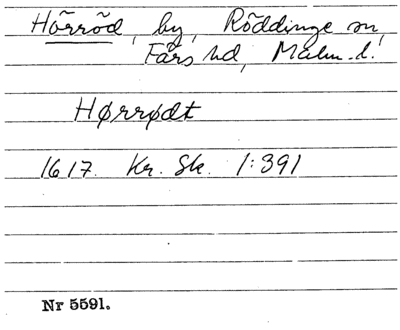 Hörröd, by, Röddinge sn,
Färs hd, Malm. l.
Hørrødt
1617. Kr. Sk. 1:391
Nr 5591.